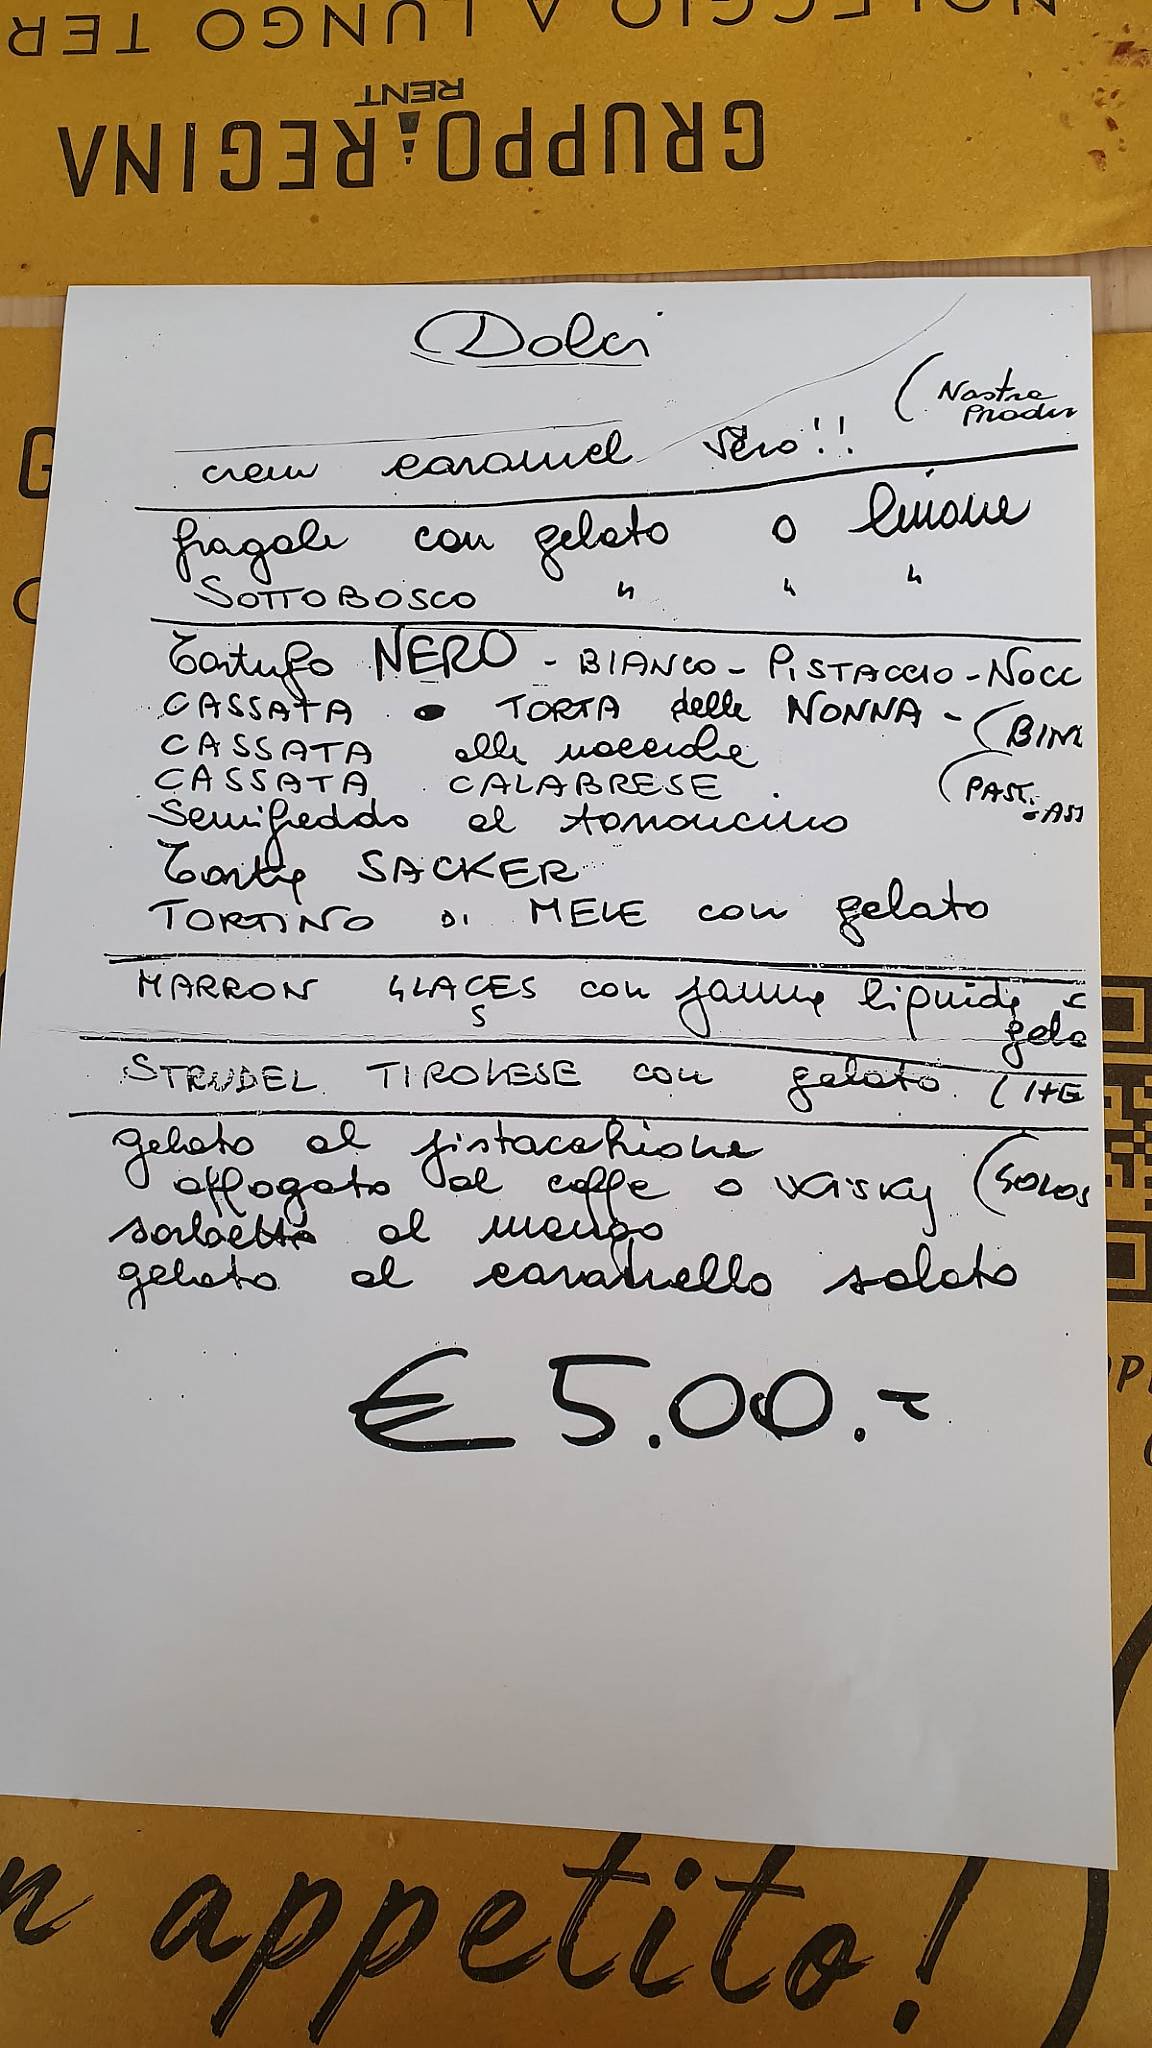 NOLEGGIO A LUNGO TER
GRUPPO REGINA
RENT
Dolci
(Nostra
Produz
crem caramel vero!!
fragole con gelato o limone
SOTTOBOSCO " " "
Tartufo NERO - BIANCO - PISTACCIO - NOCC
CASSATA • TORTA delle NONNA - (BIND
CASSATA alle nocciole
CASSATA CALABRESE . (PAST.
Semifreddo al torroncino
Torta SACKER
TORTINO DI MELE con gelato
MARRON GLACES con panna liquida
S
gela
STRUDEL TIROLESE con gelato (
gelato al pistacchione
affogato al caffe o WisKy (GOLOS
sorbetto al mango
gelato al caramello salato
€ 5.00.-
n appetito!